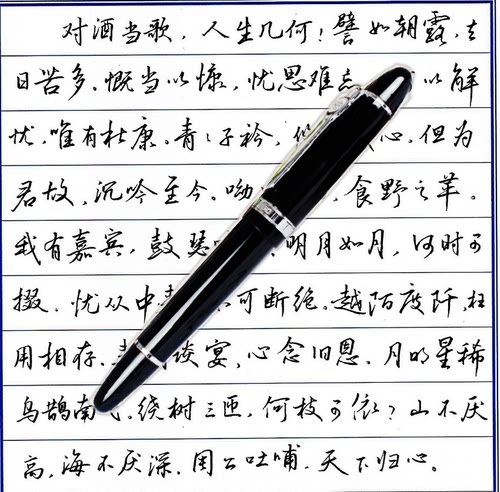 对酒当歌，人生几何！譬如朝露，去
日苦多。慨当以慷，忧思难忘 以解
忧，唯有杜康。青〻子衿， 心，但为
君故，沉吟至今。呦 ，食野之苹。
我有嘉宾，鼓瑟 明月如月，何时可
掇。忧从中 不可断绝。越陌度阡，枉
用相存。 谈宴，心念旧恩。月明星稀
乌鹊南 。绕树三匝，何枝可依？山不厌
高，海不厌深。周公吐哺，天下归心。